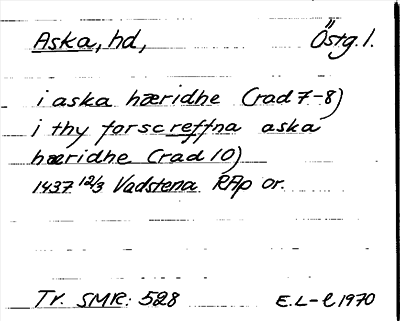 Aska, hd, Östg. l.
i aska hæridhe (rad 7-8)
i thy forscreffna aska
hæridhe (rad 10)
1437 12/3 Vadstena RAp or.
Tr. SMR: 528 E.L-l 1970